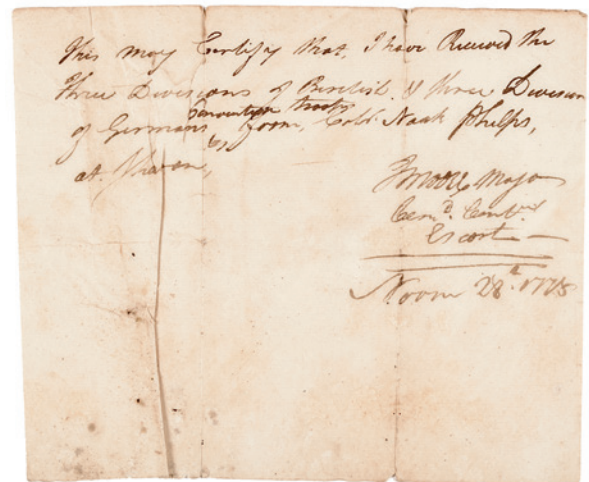 This may Certify that, I have Received the
three Divisions of British & three Division
Convention troops
of Germans from, Coll. Noah Phelps,
at Sharon,
Moore Major
Com.d Cont.
Escort
Novm 28th 1778